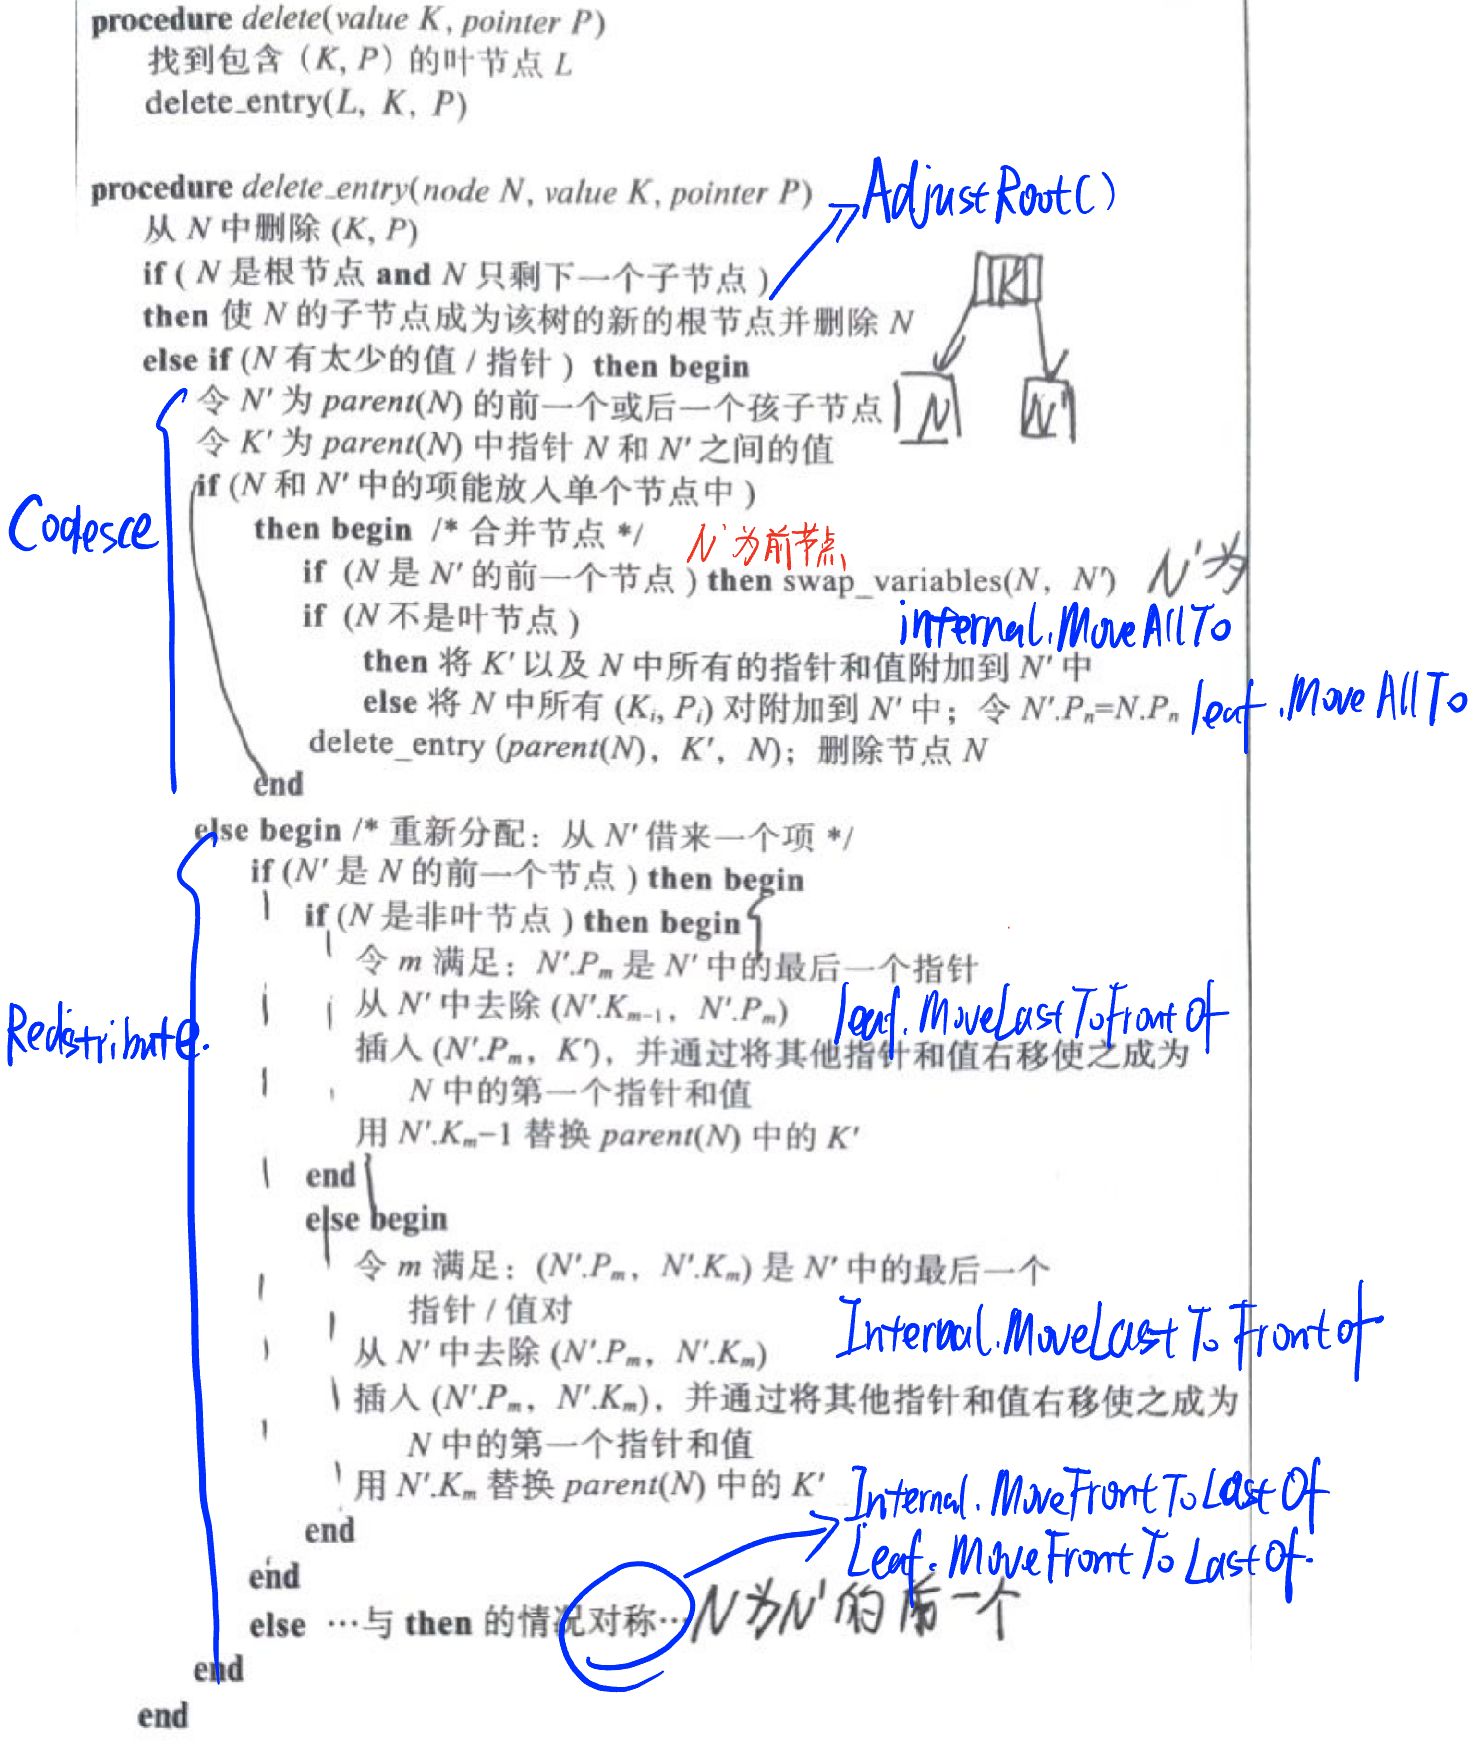 procedure delete(value K, pointer P)
找到包含（K, P）的叶节点 L
delete_entry(L, K, P)
procedure delete_entry(node N, value K, pointer P)
AdjustRoot()
从 N 中删除 (K, P)
if ( N 是根节点 and N 只剩下一个子节点 )
K
then 使 N 的子节点成为该树的新的根节点并删除 N
else if (N 有太少的值 / 指针 ) then begin
令 N′ 为 parent(N) 的前一个或后一个孩子节点
N
N'
令 K′ 为 parent(N) 中指针 N 和 N′ 之间的值
if (N 和 N′ 中的项能放入单个节点中 )
Coalesce
then begin /* 合并节点 */
N'为前节点
if (N 是 N′ 的前一个节点 ) then swap_variables(N, N′)
N'为
if (N 不是叶节点 )
internal.MoveAllTo
then 将 K′ 以及 N 中所有的指针和值附加到 N′ 中
else 将 N 中所有 (Ki, Pi) 对附加到 N′ 中；令 N′.Pn=N.Pn
leaf.MoveAllTo
delete_entry (parent(N), K′, N)；删除节点 N
end
else begin /* 重新分配：从 N′ 借来一个项 */
if (N′ 是 N 的前一个节点 ) then begin
if (N 是非叶节点 ) then begin
令 m 满足：N′.Pm 是 N′ 中的最后一个指针
从 N′ 中去除 (N′.Km−1, N′.Pm)
leaf.MoveLastToFrontOf
Redistribute.
插入 (N′.Pm, K′)，并通过将其他指针和值右移使之成为
N 中的第一个指针和值
用 N′.Km−1 替换 parent(N) 中的 K′
end
else begin
令 m 满足：(N′.Pm, N′.Km) 是 N′ 中的最后一个
指针 / 值对
Internal.MoveLastToFrontOf
从 N′ 中去除 (N′.Pm, N′.Km)
插入 (N′.Pm, N′.Km)，并通过将其他指针和值右移使之成为
N 中的第一个指针和值
用 N′.Km 替换 parent(N) 中的 K′
Internal.MoveFrontToLastOf
end
Leaf.MoveFrontToLastOf.
end
else …与 then 的情况对称…
N为N'的 一个
end
end